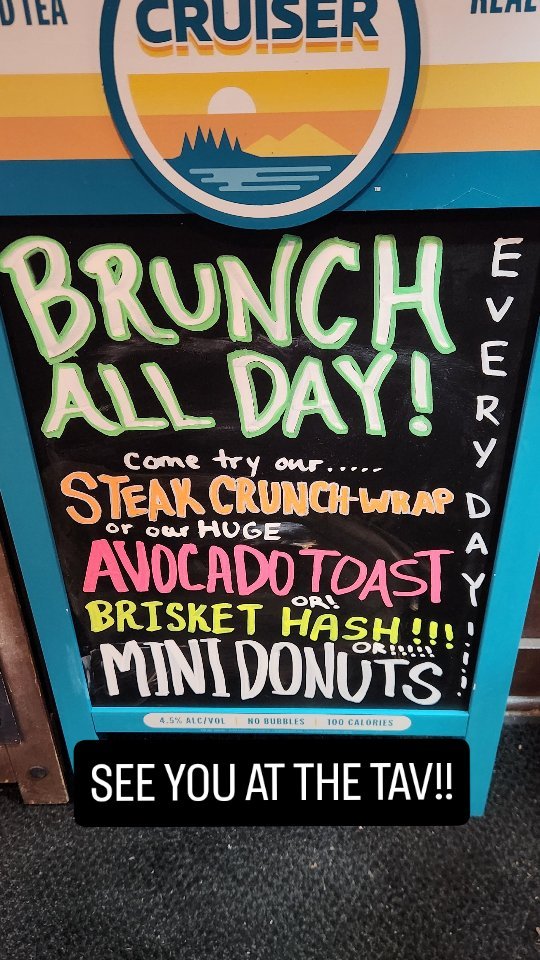 D TEA
CRUISER
REAL
BRUNCH
ALL DAY!
EVERY DAY!!!
come try our.....
STEAK CRUNCH-WRAP
or our HUGE
AVOCADO TOAST
OR!
BRISKET HASH!!!
OR!!!!!
MINI DONUTS
4.5% ALC/VOL | NO BUBBLES | 100 CALORIES
SEE YOU AT THE TAV!!